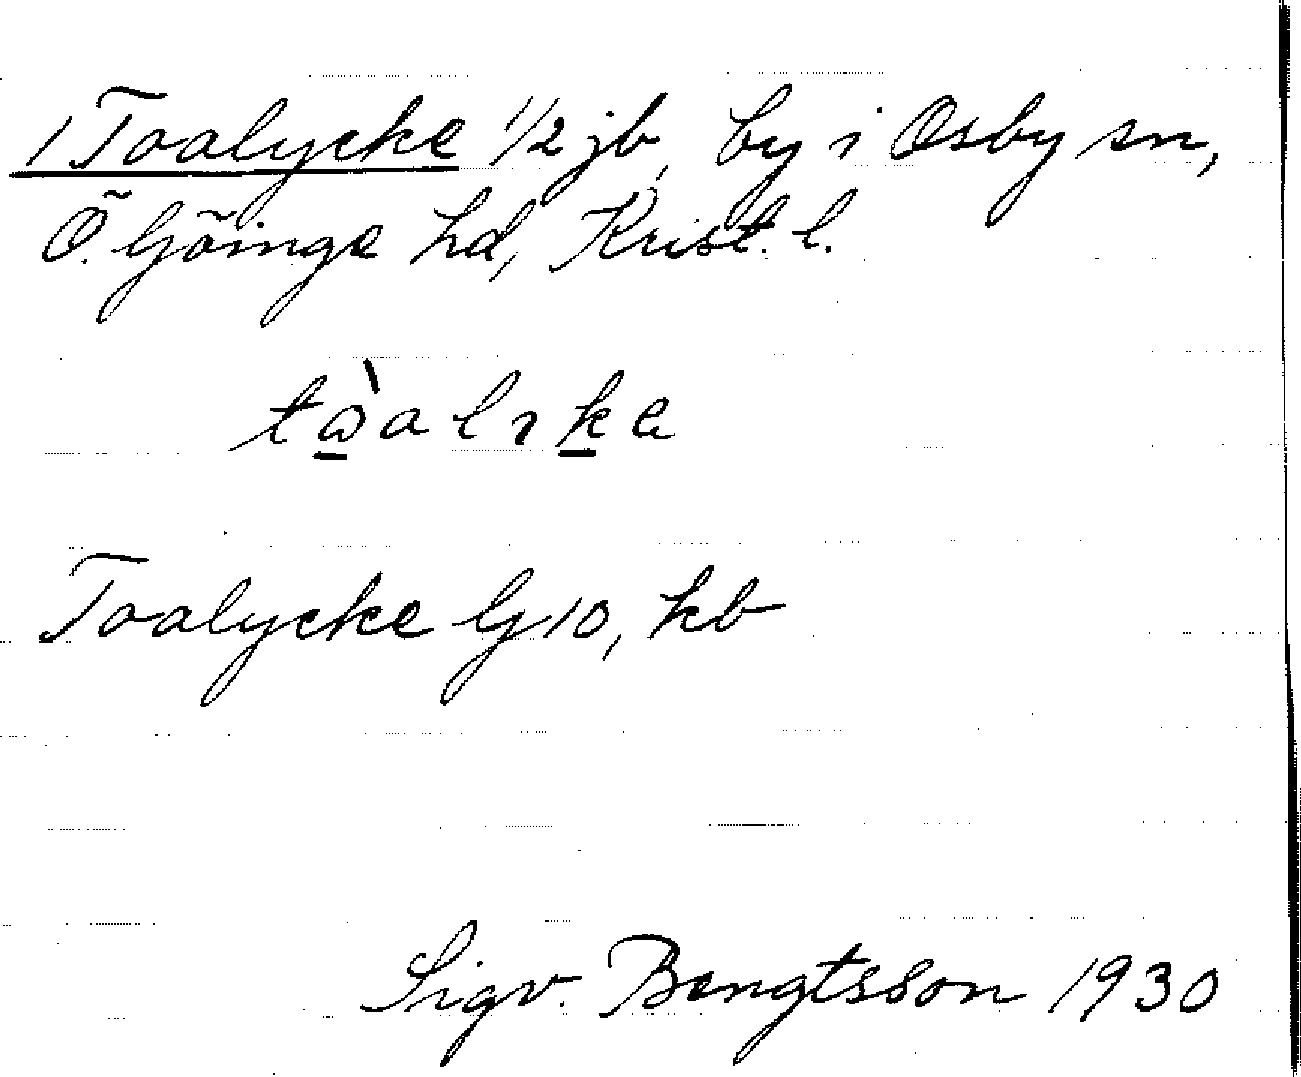 1 Toalycke 1/2 jb, by i Osby sn,
Ö. Göinge hd, Krist. l.
Toalycke G 10, kb
Sigv. Bengtsson 1930